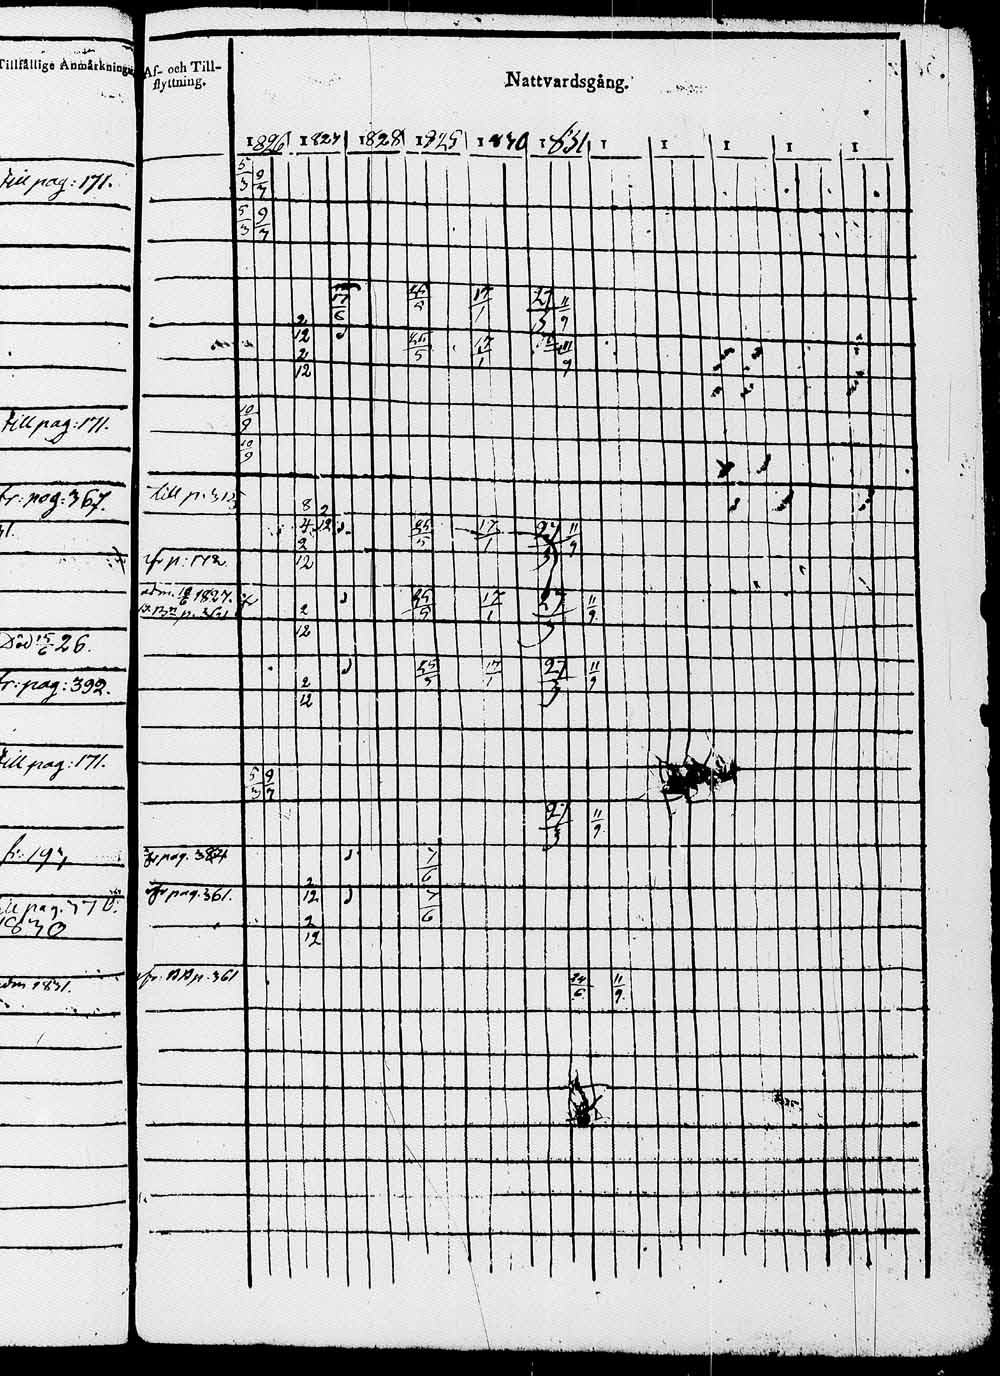 Tillfällige Anmärkningar
Af- och Till-
flyttning.
Nattvardsgång.
1826 1827 1828 1829 1830 1831 1 1 1 1 1
till pag: 171.
5/3 9/7
5/3 9/7
17/6 17/1 27/3 11/9
2/12
25/5 17/1 11/9
2/12
till pag: 171.
10/9
10/9
fr: pag: 367.
till p. 313
8/4 2/12 25/5 17/1 27/3 11/9
2/12
fr p: 112.
adm. 10/6 1827.
2/12 25/5 17/1 27/3 11/9
Död 15/6 26.
fr: pag: 392.
2/12 25/5 17/1 27/3 11/9
till pag: 171.
5/3 9/7
27/3 11/9
fr: 193
fr pag. 384
7/6
2/12
till pag. 370.
1830
fr pag. 361.
7/6
2/12
adm 1831.
fr: p. 361
24/6 11/9